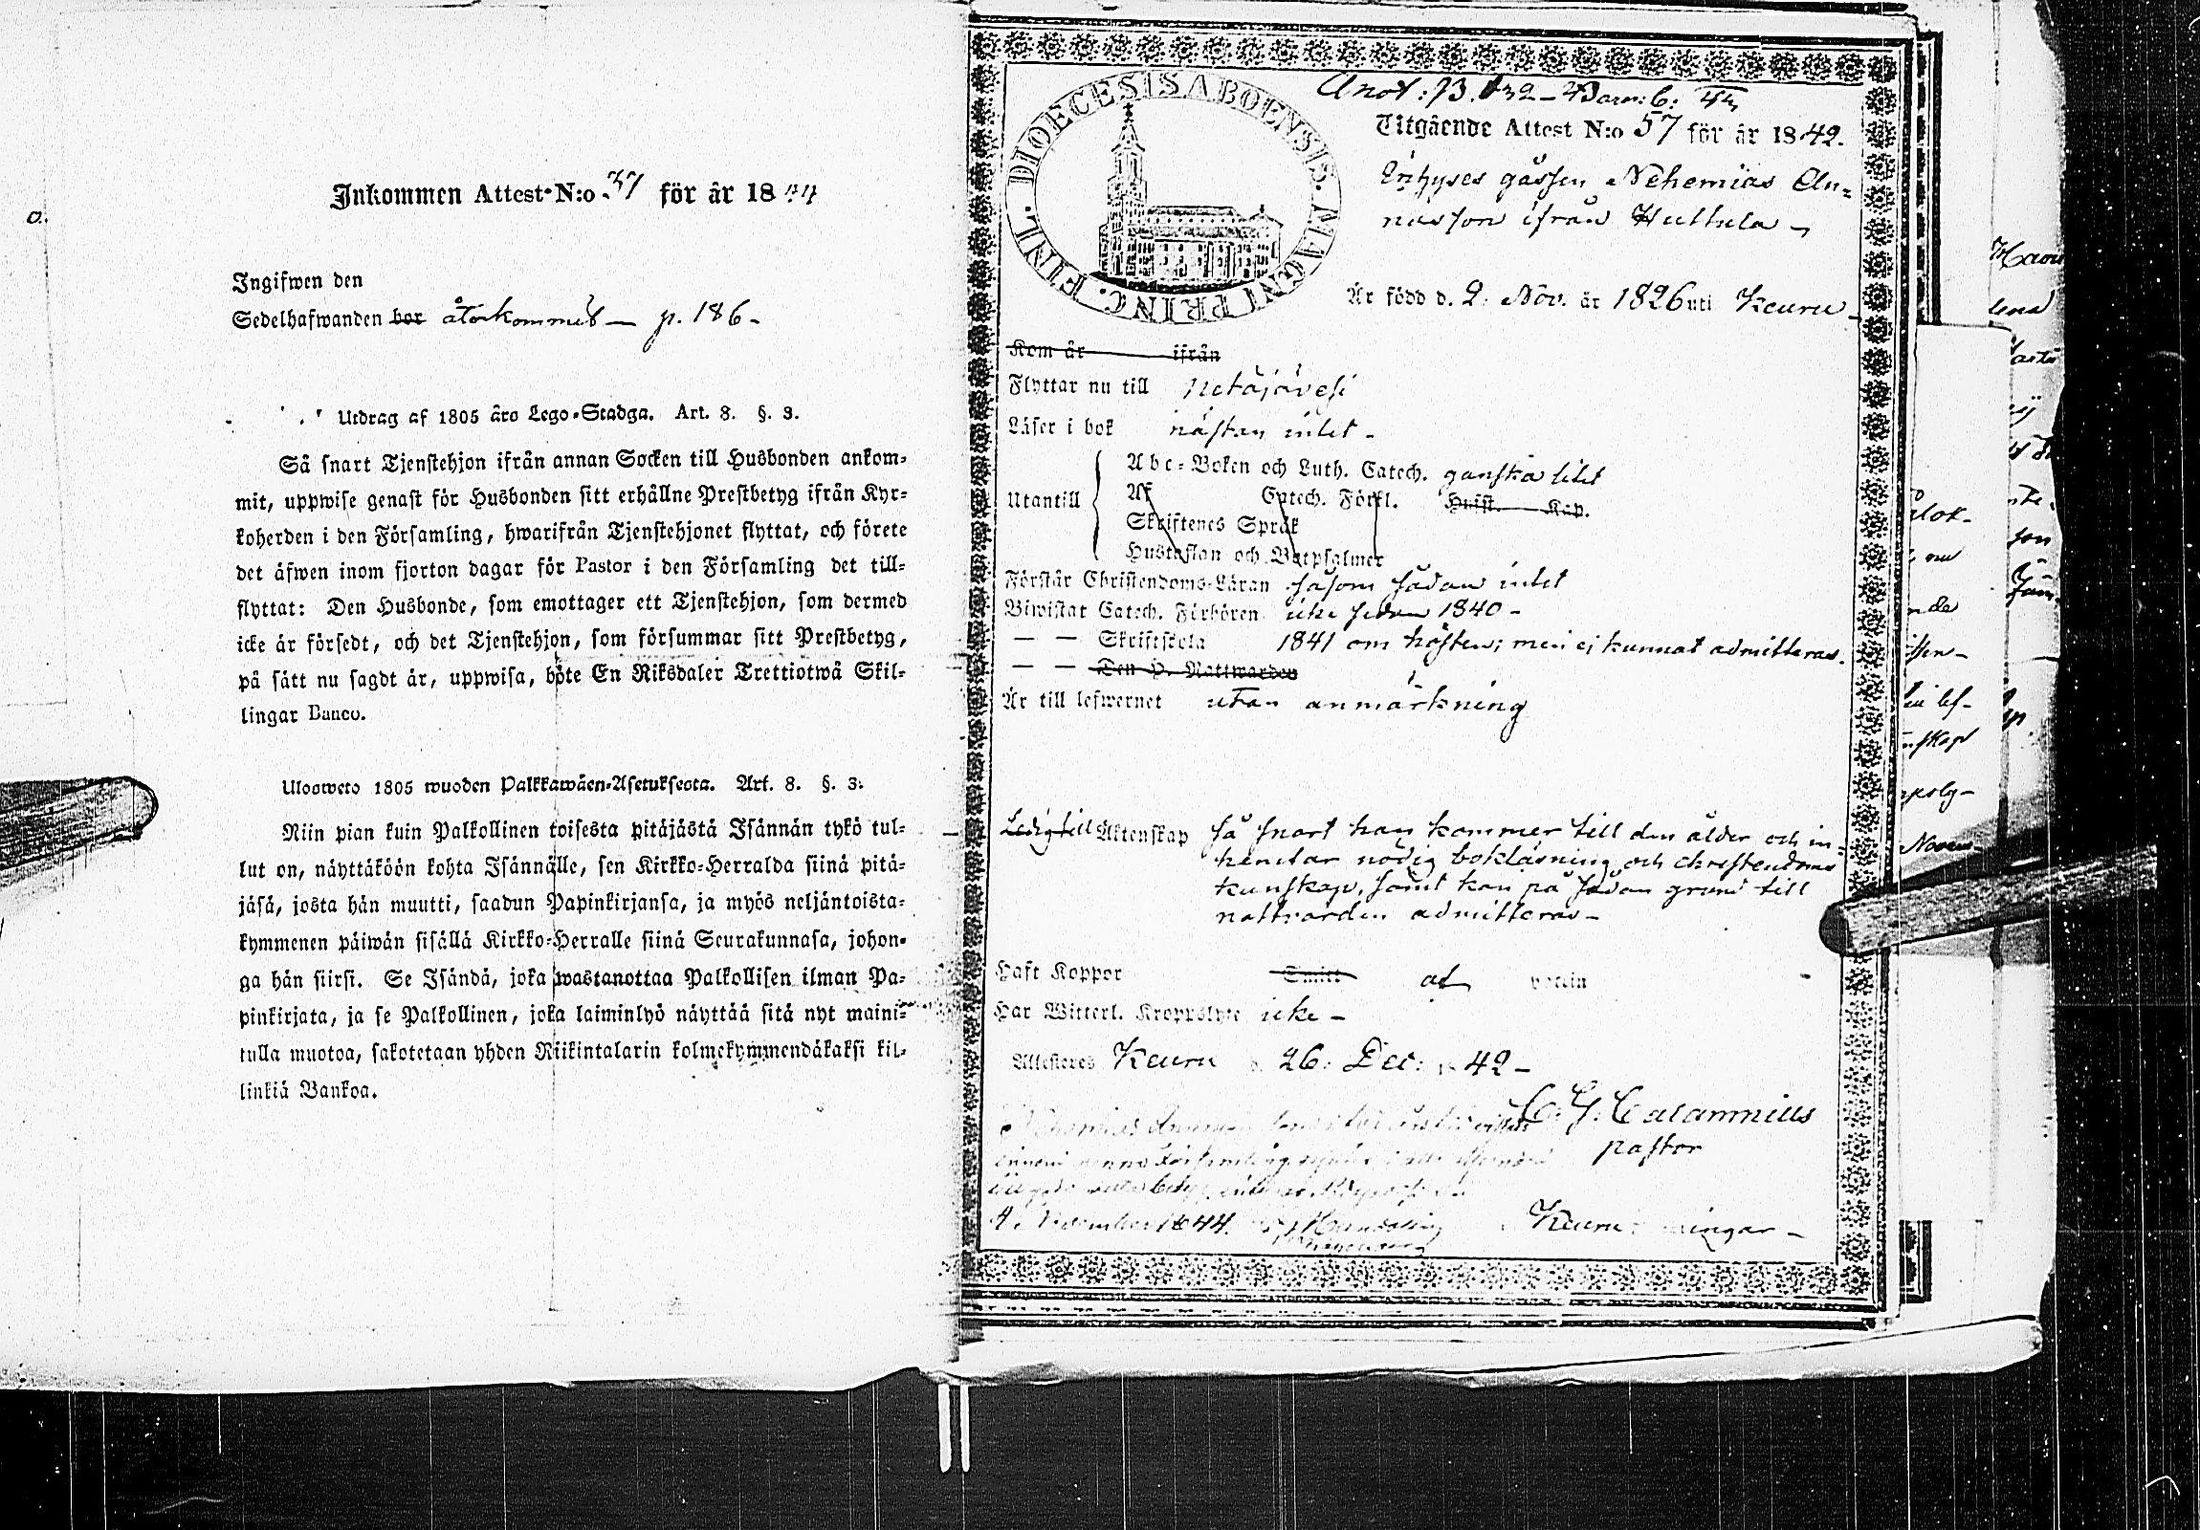 Inkommen Attest N:o 37 för år 1844
Ingifwen den
Sedelhafwanden bor återkommit — p. 186 -
Utdrag af 1805 års Lego-Stadga. Art. 8. §. 3.
Så snart Tjenstehjon ifrån annan Socken till Husbonden ankom-
mit, uppwise genast för Husbonden sitt erhållne Prestbetyg ifrån Kyr-
koherden i den Församling, hwarifrån Tjenstehjonet flyttat, och förete
det äfwen inom fjorton dagar för Pastor i den Församling det till-
flyttat: Den Husbonde, som emottager ett Tjenstehjon, som dermed
icke är försedt, och det Tjenstehjon, som försummar sitt Prestbetyg,
på sätt nu sagdt är, uppwisa, böte En Riksdaler Trettiotwå Skil-
lingar Banco.
Ulosweto 1805 wuoden Palkkawäen-Asetuksesta. Art. 8. §. 3.
Niin pian kuin Palkollinen toisesta pitäjästä Isännän tykö tul-
lut on, näyttäköön kohta Isännälle, sen Kirkko-Herralda siinä pitä-
jäsä, josta hän muutti, saadun Papinkirjansa, ja myös neljäntoista-
kymmenen päiwän sisällä Kirkko-Herralle siinä Seurakunnasa, johon-
ga hän siirsi. Se Isändä, joka wastanottaa Palkollisen ilman Pa-
pinkirjata, ja se Palkollinen, joka laiminlyö näyttää sitä nyt maini-
tulla muotoa, sakotetaan yhden Riikintalarin kolmekymmendäkaksi kil-
linkiä Bankoa.
DIOECESIS ABOENSIS. MAGNI PRINC. FINL.
Utgående Attest N:o 57 för år 1842.
Inhyses gossen Nehemias An-
nasson ifrån Huttula -
Är född d. 2. Nov. år 1826 uti Keuru -
Kom år ifrån
Flyttar nu till Petäjävesi
Läser i bok nästan intet -
Utantill
Abc-Boken och Luth. Catech. ganska litet
Af Catech. Förkl. Hufst. Kap.
Skriftenes Språk
Hustaflan och Botpsalmer
Förstår Christendoms-Läran såsom sådan intet
Biwistat Catech. Förhören icke sedan 1840 -
— — Skriftskola 1841 om hösten; men ej kunnat admitteras.
— — Den H. Nattwarden
Är till lefwernet utan anmärkning
Ledig till Äktenskap så snart han kommer till den ålder och in-
hemtar nödig bokläsning och christendoms
kunskap, samt kan på sådan grund till
nattvarden admitteras -
Haft Koppor Smitt af
Har Witterl. Kroppslyte icke -
Attesteres Keuru d. 26. Dec: 1842 -
C. G. Calamnius
pastor
4. November 1844.
Keuru